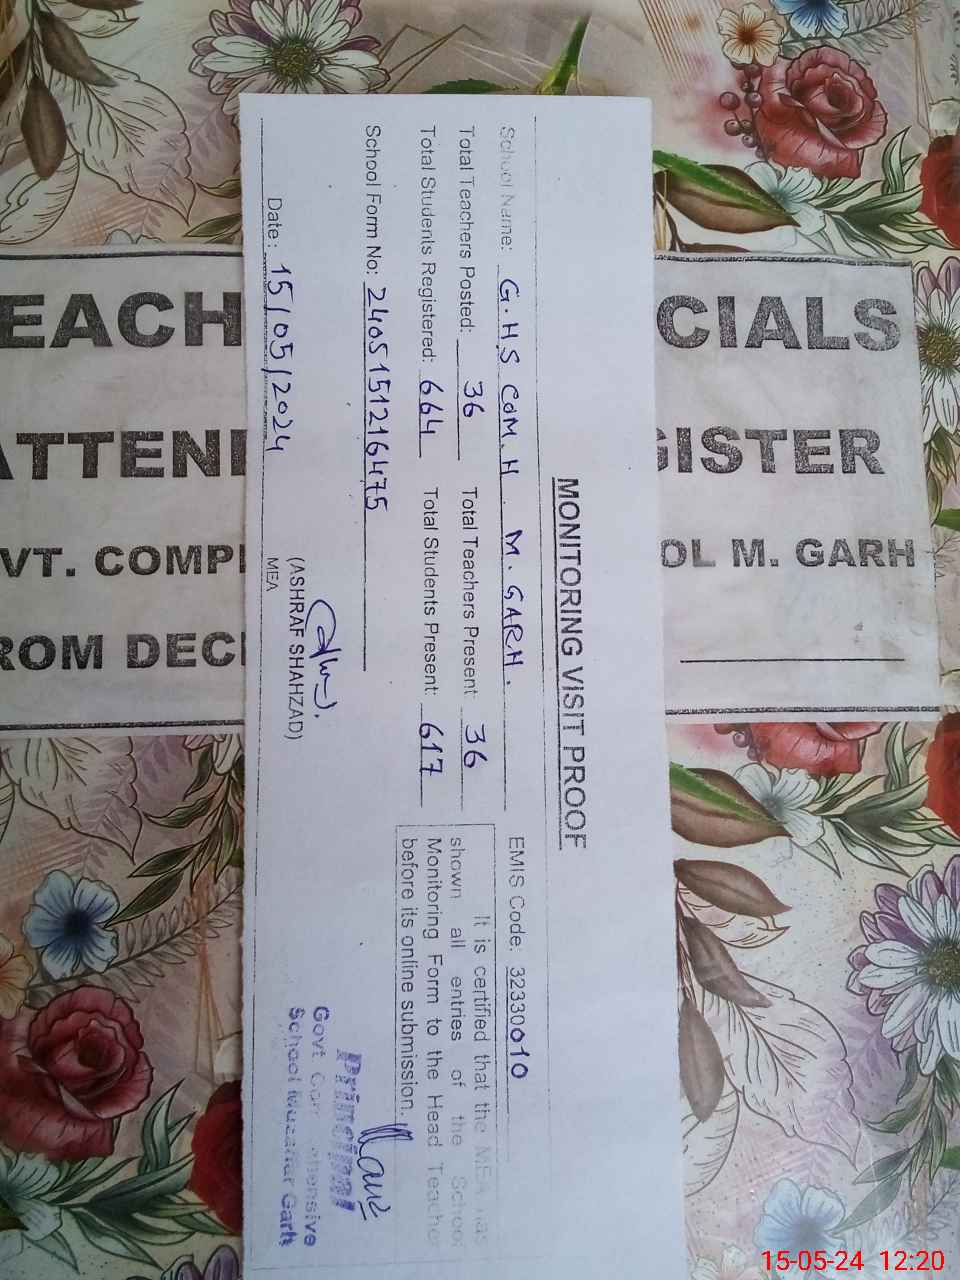 MONITORING VISIT PROOF
School Name: G.HS COM. H. M. GARH. EMIS Code: 32330010
Total Teachers Posted: 36 Total Teachers Present: 36
Total Students Registered: 664 Total Students Present: 617
It is certified that the MEA has
shown all entries of the School
Monitoring Form to the Head Teacher
before its online submission.
School Form No: 2405151216475
(ASHRAF SHAHZAD)
MEA
Date: 15/05/2024
Principal
Govt Com ehensive
School Muzaffar Garh
EACH CIALS
ATTEN GISTER
VT. COMP OL M. GARH
ROM DEC
15-05-24 12:20